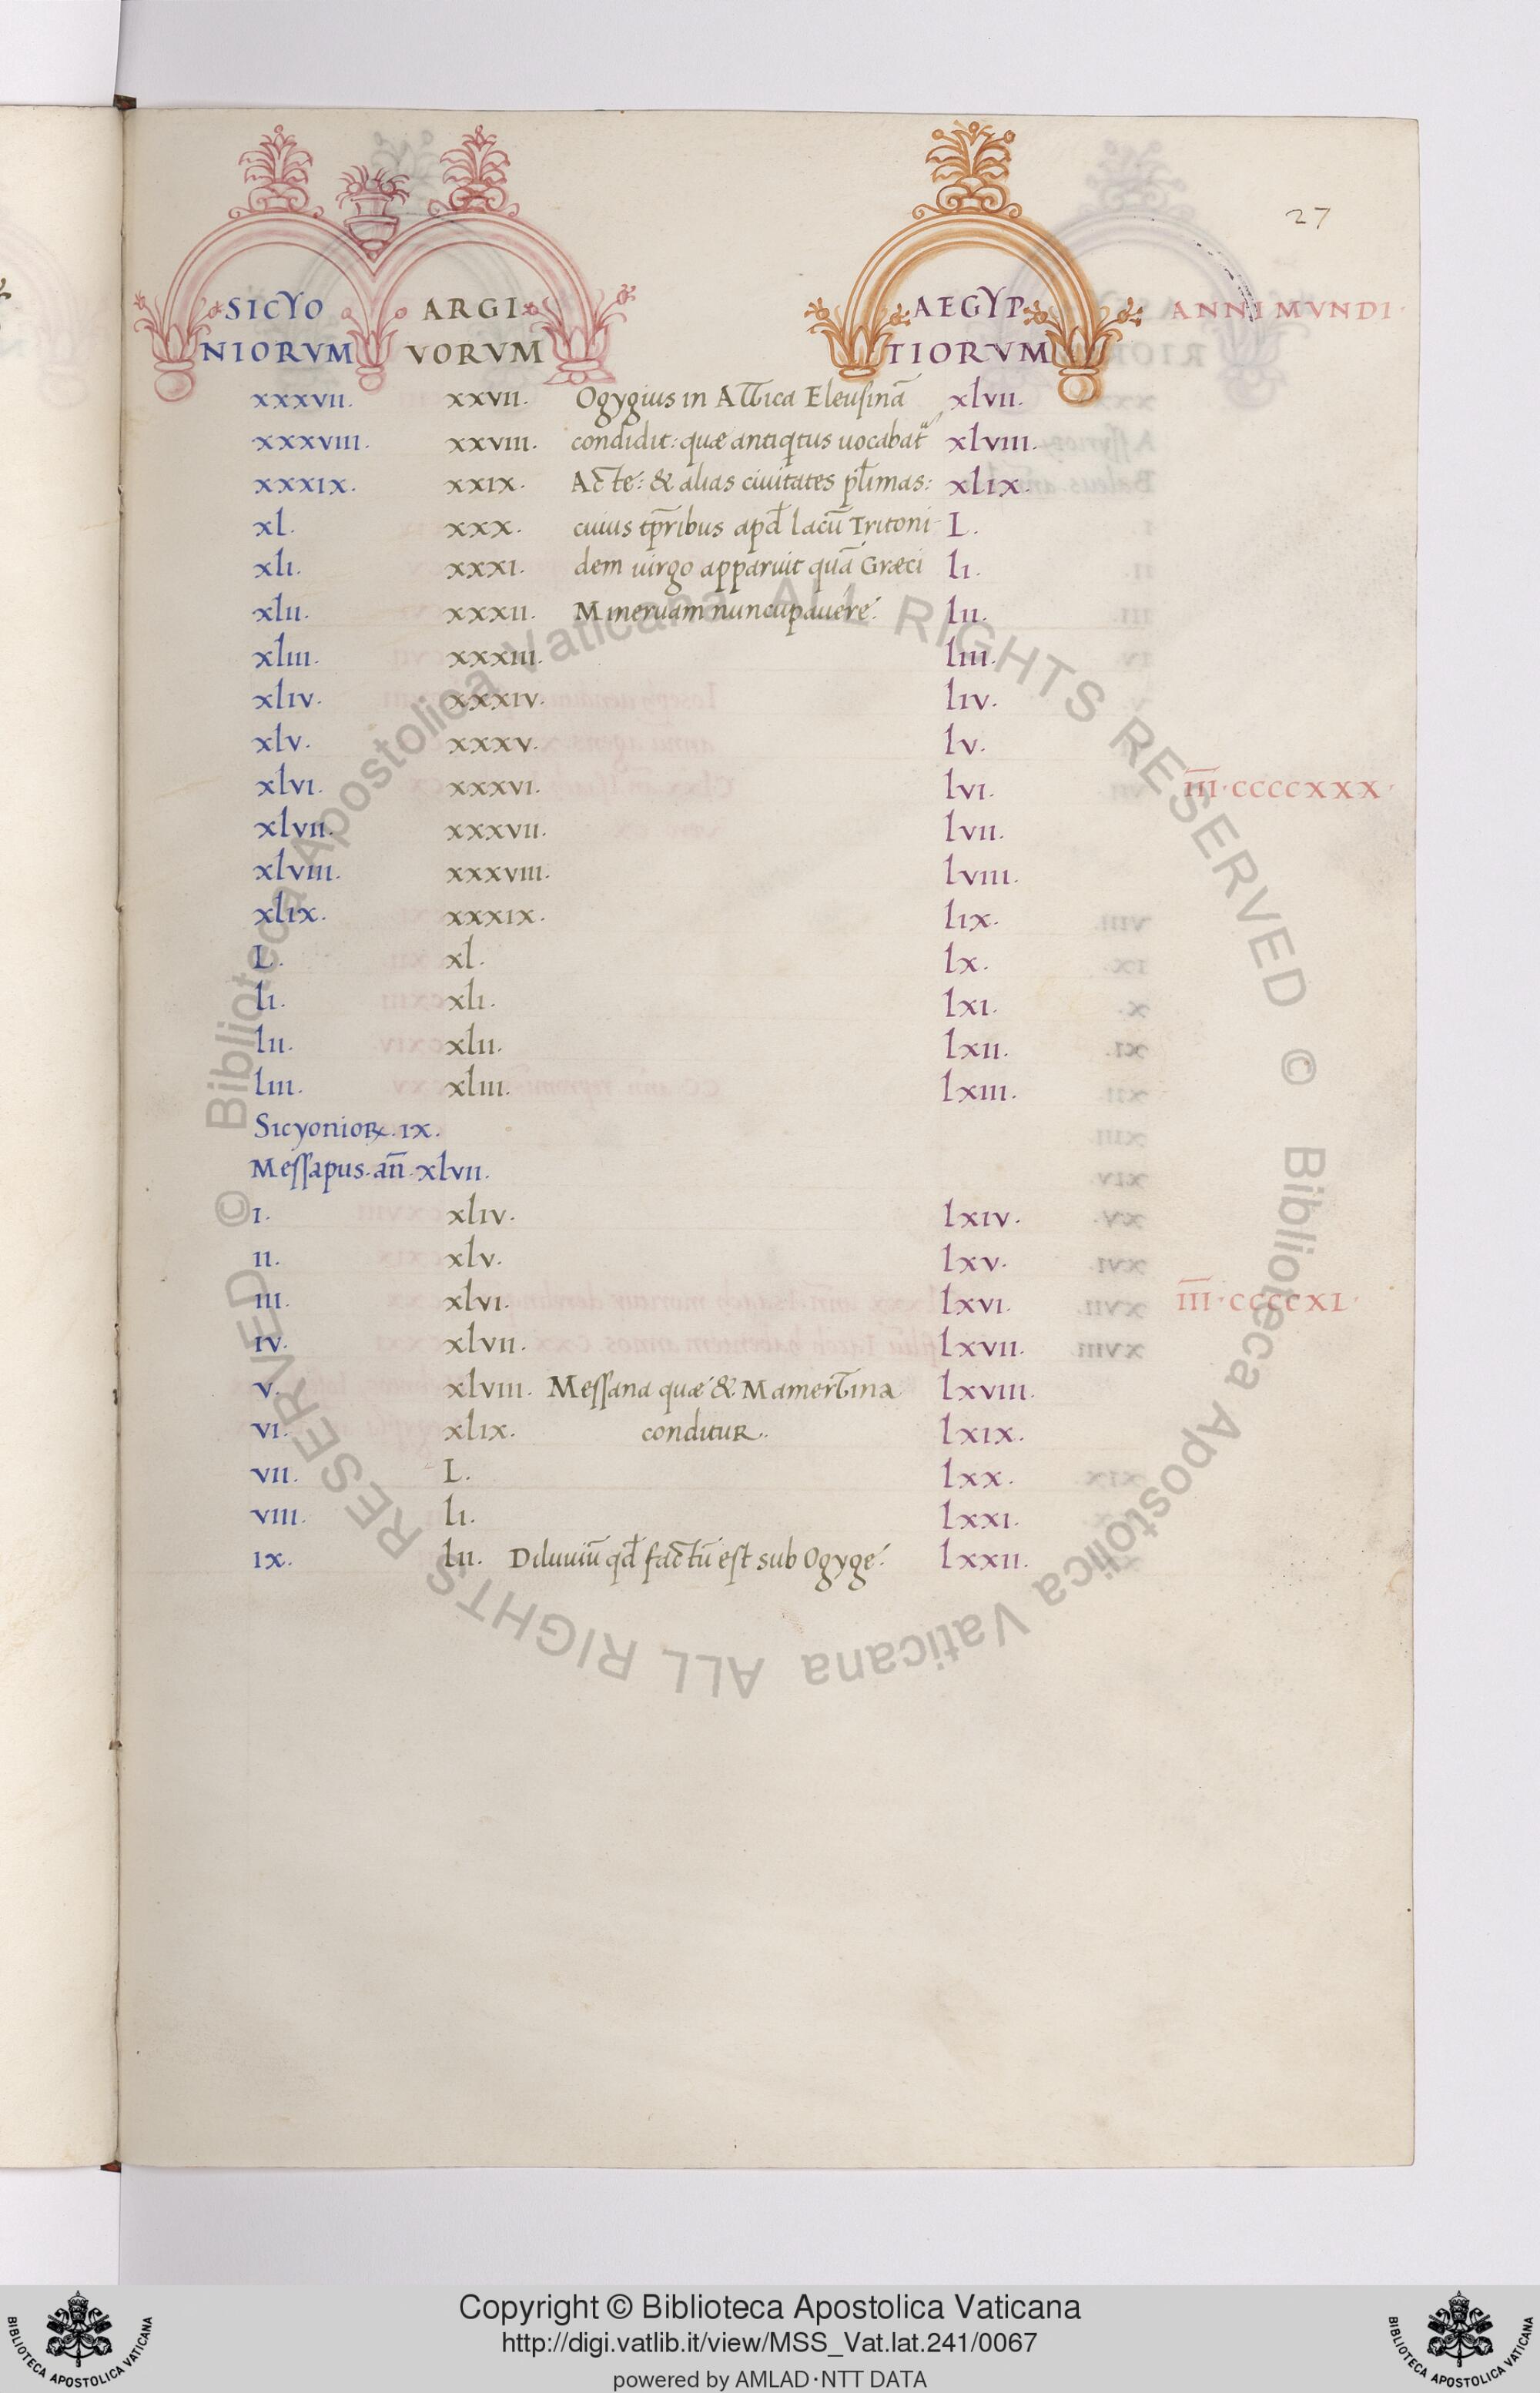 27
SICYO ARGI AEGYP ANNI MVNDI·
NIORVM VORVM TIORVM
xxxvii. xxvii. Ogygius in Attica Eleusinā xlvii.
xxxviii. xxviii. condidit: quæ antiqtus uocabat xlviii.
xxxix. xxix. Acte: & alias ciuitates pl̄imas: xlix.
xl. xxx. cuius tp̄ribus apd̄ lacū Tritoni L.
xli. xxxi. dem uirgo apparuit quā Græci li.
xlii. xxxii. Mineruam nuncupauere. lii.
xliii. xxxiii. liii.
xliv. xxxiv. liv.
xlv. xxxv. lv.
xlvi. xxxvi. lvi. III·CCCCXXX·
xlvii. xxxvii. lvii.
xlviii. xxxviii. lviii.
xlix. xxxix. lix.
L. xl. lx.
li. xli. lxi.
lii. xlii. lxii.
liii. xliii. lxiii.
Sicyonioꝝ. ix.
Messapus. añ. xlvii.
i. xliv. lxiv.
ii. xlv. lxv.
iii. xlvi. lxvi. III·CCCCXL·
iv. xlvii. lxvii.
v. xlviii. Messana quæ & Mamertina lxviii.
vi. xlix. conditur. lxix.
vii. L. lxx.
viii. li. lxxi.
ix. lii. Diluuiū qd̄ factū est sub Ogyge. lxxii.
© Biblioteca Apostolica Vaticana ALL RIGHTS RESERVED
© Biblioteca Apostolica Vaticana ALL RIGHTS RESERVED
Copyright © Biblioteca Apostolica Vaticana
http://digi.vatlib.it/view/MSS_Vat.lat.241/0067
powered by AMLAD·NTT DATA
BIBLIOTECA APOSTOLICA VATICANA
BIBLIOTECA APOSTOLICA VATICANA